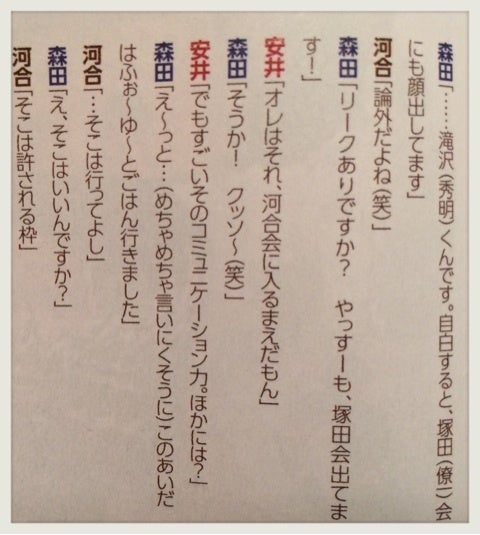 森田「……滝沢(秀明)くんです。自白すると、塚田(僚一)会
にも顔出してます」
河合「論外だよね(笑)」
森田「リークありですか? やっすーも、塚田会出てま
す!」
安井「オレはそれ、河合会に入るまえだもん」
森田「そうか! クッソ〜(笑)」
安井「でもすごいそのコミュニケーション力。ほかには?」
森田「え〜っと…(めちゃめちゃ言いにくそうに)このあいだ
はふぉ〜ゆ〜とごはん行きました」
河合「…そこは行ってよし」
森田「え、そこはいいんですか?」
河合「そこは許される枠」